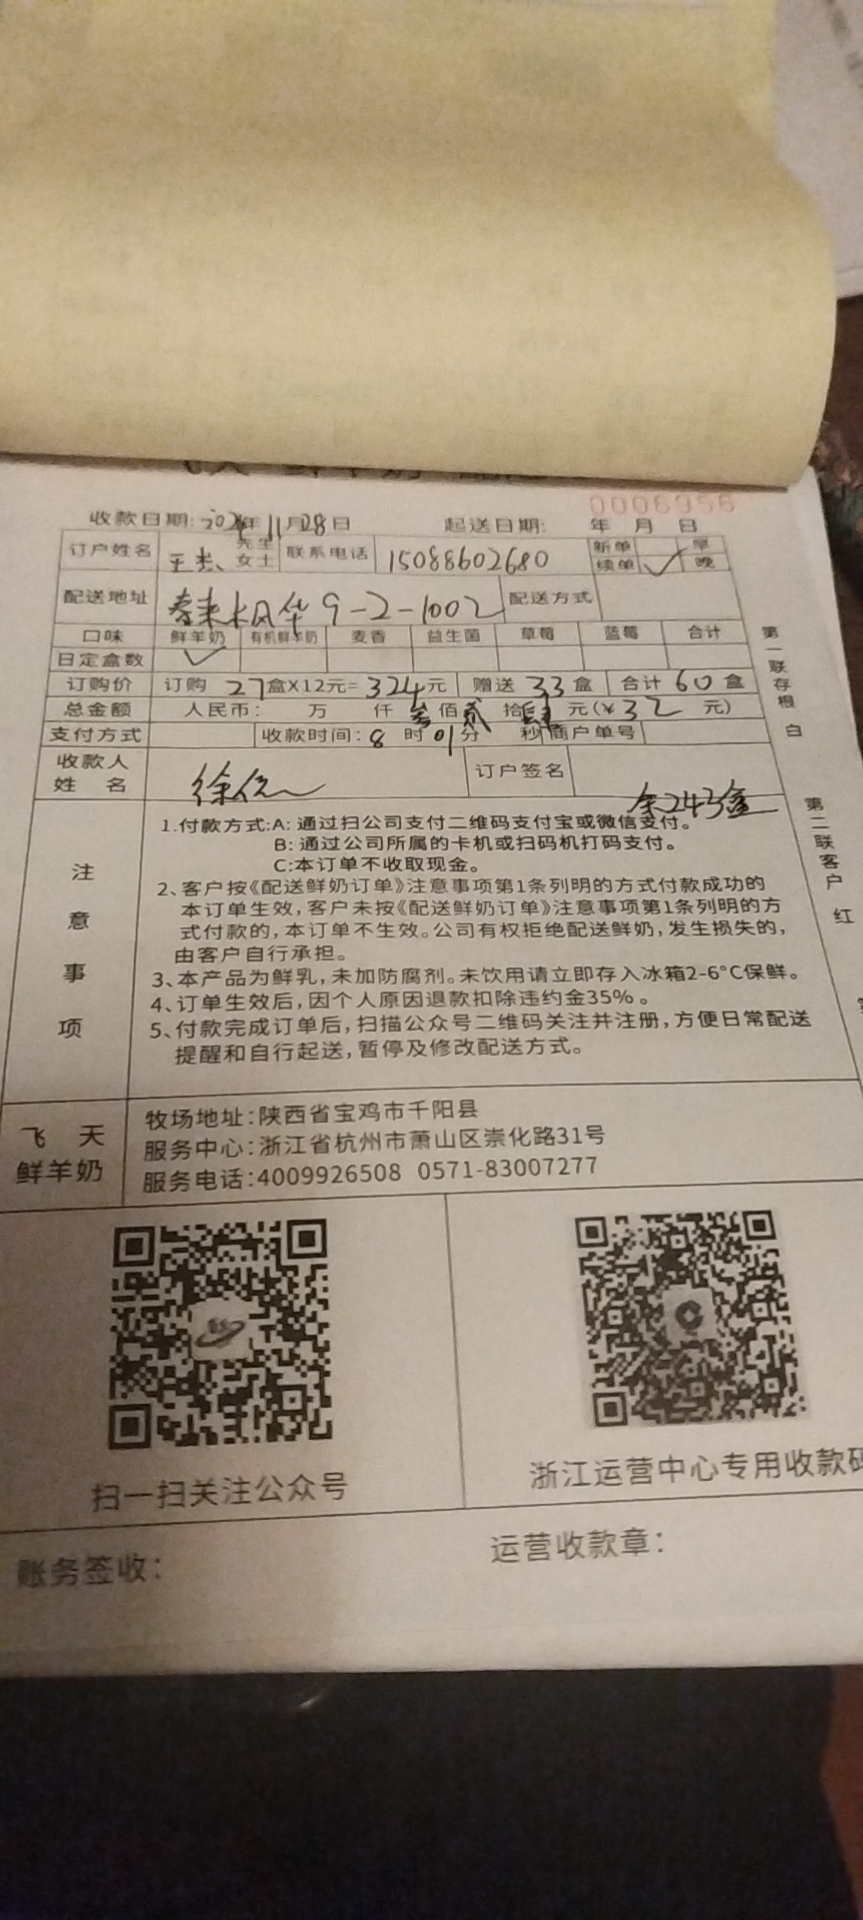 0006956
收款日期: 2024年 11月28日 起送日期: 年 月 日
订户姓名 先生 女士 联系电话 15088602680 新单 早
续单 ✓ 晚
配送地址 9-2-1002 配送方式
口味 鲜羊奶 有机鲜羊奶 麦香 益生菌 草莓 蓝莓 合计
日定盒数 ✓
订购价 订购 27盒X12元=324元 赠送 33盒 合计 60盒
总金额 人民币: 万 仟 叁佰贰拾肆元(¥32 元)
支付方式 收款时间: 8时01分 秒 商户单号
收款人姓名 徐 订户签名
余243盒
注意事项
1.付款方式:A: 通过扫公司支付二维码支付宝或微信支付。
B: 通过公司所属的卡机或扫码机打码支付。
C:本订单不收取现金。
2、客户按《配送鲜奶订单》注意事项第1条列明的方式付款成功的
本订单生效,客户未按《配送鲜奶订单》注意事项第1条列明的方
式付款的,本订单不生效。公司有权拒绝配送鲜奶,发生损失的,
由客户自行承担。
3、本产品为鲜乳,未加防腐剂。未饮用请立即存入冰箱2-6°C保鲜。
4、订单生效后,因个人原因退款扣除违约金35%。
5、付款完成订单后,扫描公众号二维码关注并注册,方便日常配送
提醒和自行起送,暂停及修改配送方式。
第一联存根 白
第二联客户 红
飞天
鲜羊奶
牧场地址:陕西省宝鸡市千阳县
服务中心:浙江省杭州市萧山区崇化路31号
服务电话:4009926508 0571-83007277
扫一扫关注公众号
浙江运营中心专用收款码
账务签收:
运营收款章: